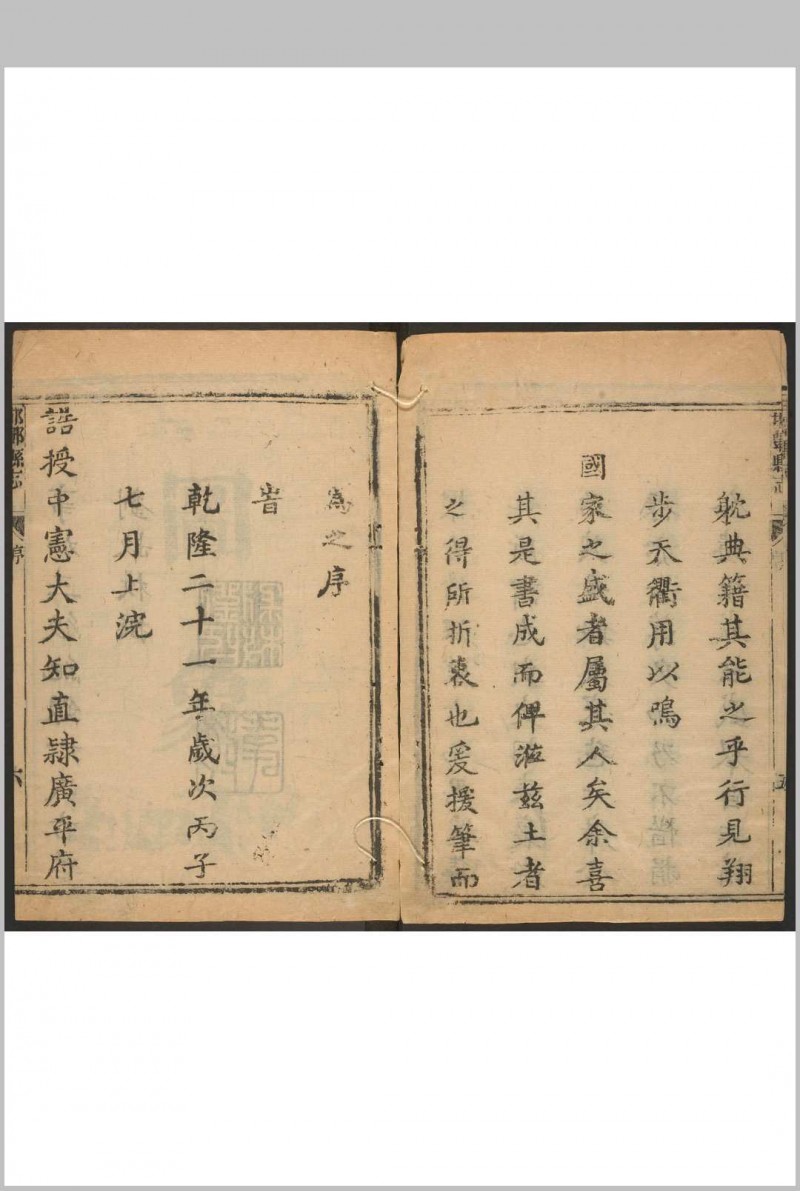 躭典籍其能之乎行見翔
步天衢用以鳴
國家之盛者屬其人矣余喜
其是書成而俾涖茲土者
之得所折衷也爰援筆而
為之序
旹
乾隆二十一年歲次丙子
七月上浣
誥授中憲大夫知直隷廣平府
邯鄲縣志
序
六